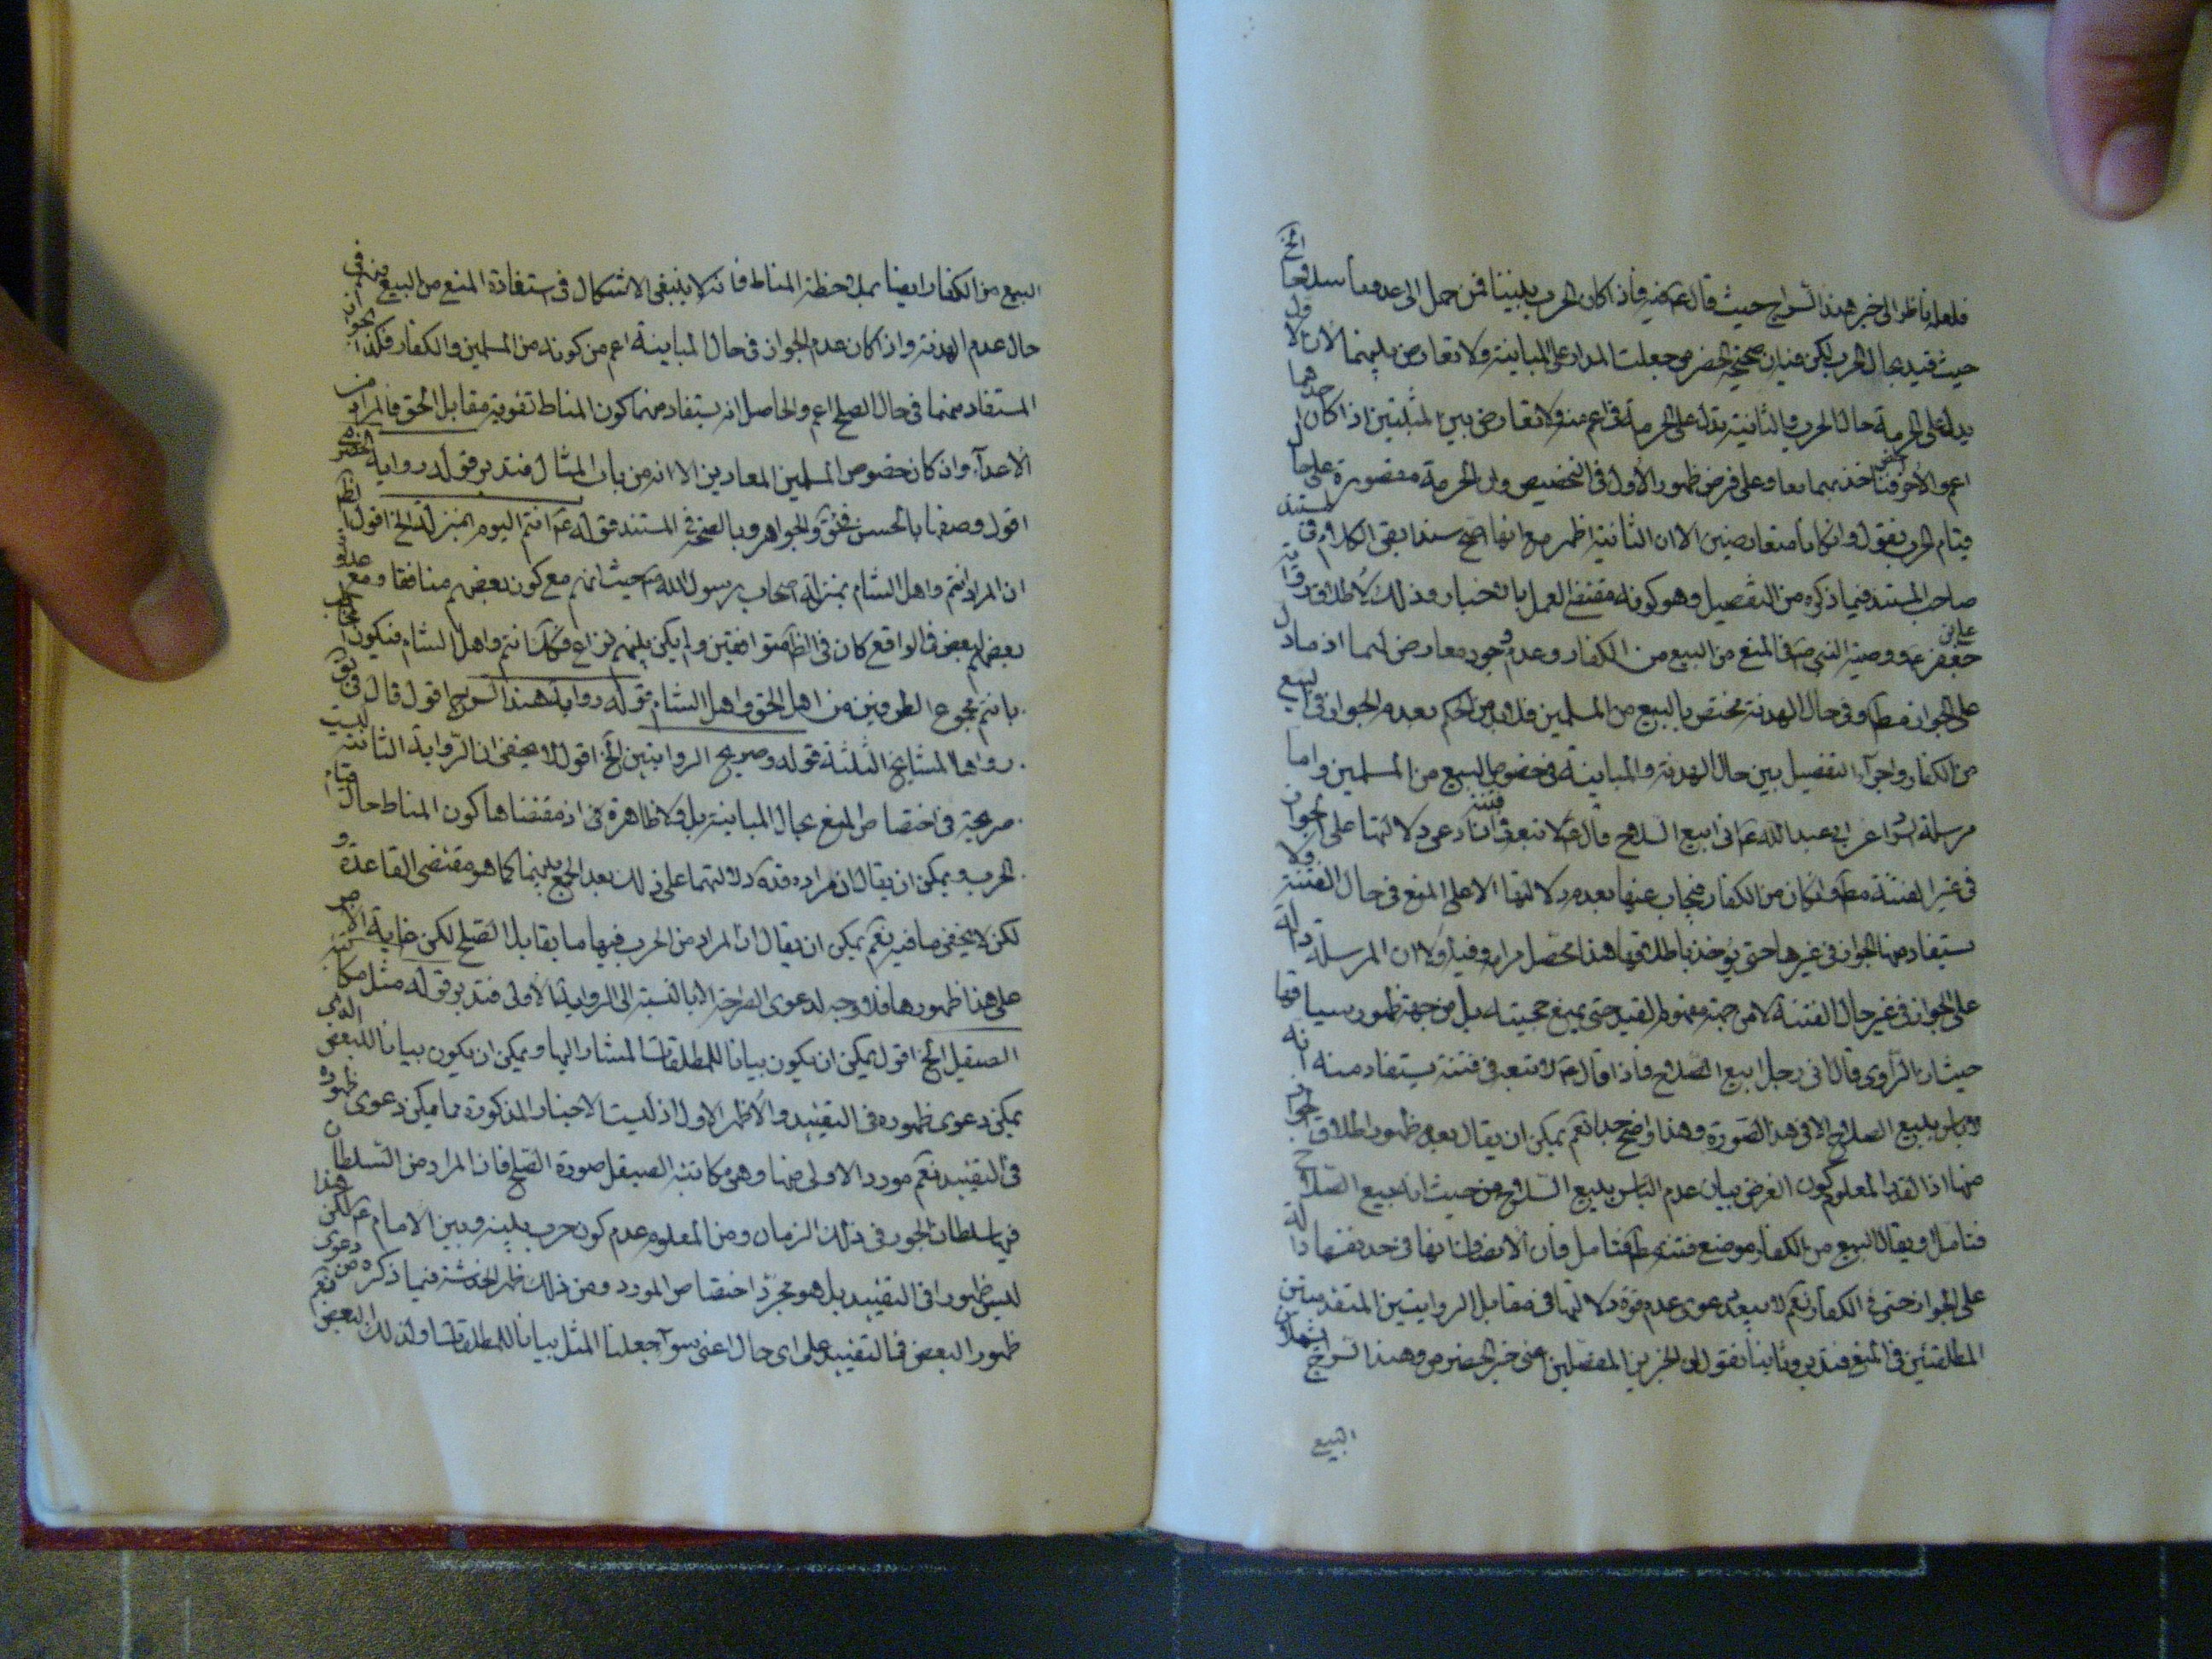 فلعله ناظر الى خبر هند السراج حيث قال ع فيه فاذا كان الحرب بيننا فمن حمل الى عدونا سلاحا الخ
حيث قيد بحال الحرب لكن فيه ان صحيحة الحضرمى جعلت المدار على المباينة ولا تعارض بينهما لان الاول
يدل على الحرمة حال الحرب والثانية تدل على الحرمة فى اعم منه ولا تعارض بين المثبتين اذا كان احدهما
اعم والاخر اخص فناخذ بهما معا وعلى فرض ظهور الاول فى التخصيص وان الحرمة مقصورة على حال
قيام الحرب نقول وان كانا متعارضين الا ان الثانية اظهر مع انها اصح سندا بقى الكلام فى مستند
صاحب المستند فيما ذكره من التفصيل وهو كونه مقتضى العمل بالاخبار وذلك لاطلاق رواية
على بن جعفر ع ووصية النبى ص فى المنع من البيع من الكفار وعدم وجود معارض لهما اذ ما دل
على الجواز مط او فى حال الهدنة مختص بالبيع من المسلمين فلا بد من الحكم بعدم الجواز فى البيع
من الكفار واجراء التفصيل بين حال الهدنة والمباينة فى خصوص البيع من المسلمين واما
مرسلة السراد عن ابى عبد الله ع انى ابيع السلاح قال ع لا تبعه فى فتنة فان ادعى دلالتها على الجواز
فى غير الفتنة مط وان كان من الكفار فيجاب عنها بعدم دلالتها الا على المنع فى حال الفتنة ولا
يستفاد منها الجواز فى غيرها حتى يؤخذ باطلاقها هذا محصل مرامه وفيه اولا ان المرسلة دالة
على الجواز فى غير حال الفتنة لا من جهة مفهوم القيد حتى يمنع حجيته بل من جهة ظهور سياقها
حيث ان الراوى قال انى رجل ابيع السلاح فاذا قال ع لا تبعه فى فتنة يستفاد منه انه
لا باس ببيع السلاح الا فى هذه الصورة وهذا واضح جدا نعم يمكن ان يقال بعدم ظهور اطلاق الجواز
منها اذ القدر المعلوم كون الغرض بيان عدم الباس ببيع السلاح من حيث انه بيع السلاح
فتامل او يقال البيع من الكفار موضع فتنة مط فتامل فان الانصاف انها فى حد نفسها دالة
على الجواز حتى فى الكفار نعم لا يبعد دعوى عدم قوة دلالتها فى مقابل الروايتين المتقدمتين
المطلقتين فى المنع فتدبر وثانيا نقول ان الخبرين المفصلين اعنى خبر الحضرمى وهند السراج يشملان
البيع
البيع من الكفار ايضا بملاحظة المناط فانه لا ينبغى الاشكال فى استفادة المنع من البيع منه فى
حال عدم الهدنة واذا كان عدم الجواز فى حال المباينة اعم من كونه من المسلمين والكفار فكذا الجواز
المستفاد منهما فى حال الصلح اعم والحاصل انه يستفاد منهما كون المناط تقوية مقابل الحق فالمراد من
الاعداء وان كان خصوص المسلمين المعادين الا انه من باب المثال فتدبر قوله رواية الحضرمى
اقول وصفها بالحسن فى ئق والجواهر وبالصحة فى المستند قوله ع انتم اليوم بمنزلة الخ اقول الظاهر
ان المراد انتم واهل الشام بمنزلة اصحاب رسول الله ص حيث انهم مع كون بعضهم منافقا ومع عداوة
بعضهم لبعض فى الواقع كان فى الظ متوافقين ولم يكن بينهم نزاع فكذا انتم واهل الشام فيكون
بانتم مجموع الطرفين من اهل الحق واهل الشام قوله رواية هند السراج اقول قال فى
رواها المشايخ الثلثة قوله وصريح الروايتين الخ اقول لا يخفى ان الرواية الثانية ليست
صريحة فى اختصاص المنع بحال المباينة بل ولا ظاهرة فى اذ مقتضاها كون المناط حال قيام
الحرب ويمكن ان يقال ان مراده قده دلالتهما على ذلك بعد الجمع بينهما كما هو مقتضى القاعدة و
لكن لا يخفى ما فيه نعم يمكن ان يقال ان المراد من الحرب فيها ما يقابل الصلح لكن غاية الامر
على هذا ظهورها فلا وجه لدعوى الصراحة الا بالنسبة الى الرواية الاولى فتدبر قوله مثل مكاتبة
الصيقل الخ اقول يمكن ان يكون بيانا للمطلقات المشار اليها ويمكن ان يكون بيانا للبعض الذى
يمكن دعوى ظهوره فى التقييد والاظهر الاول اذ ليست الاخبار المذكورة مما يمكن دعوى ظهوره
فى التقييد نعم مورد الاولى منها وهى مكاتبة الصيقل صورة الصلح فان المراد من السلطان
فيها سلطان الجور فى ذلك الزمان ومن المعلوم عدم كون حرب بينه وبين الامام ع لكن هذا
ليس ظهورا فى التقييد بل هو مجرد اختصاص المورد ومن ذلك ظهر الخدشة فيما ذكره من دعوى
ظهور البعض فى التقييد على اى حال اعنى سواء جعلنا المثل بيانا للمطلقات او لذلك البعض نعم